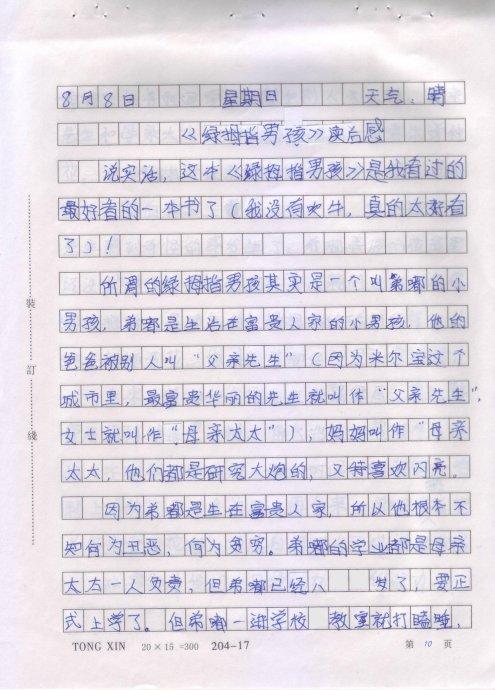 8月8日 星期日 天气：晴
《绿拇指男孩》读后感
说实话，这本《绿拇指男孩》是我看过的
最好看的一本书了（我没有吹牛，真的太好看
了）！
所谓的绿拇指男孩其实是一个叫弟嘟的小
男孩，弟嘟是生活在富贵人家的小男孩，他的
爸爸被别人叫“父亲先生”（因为米尔宝这个
城市里，最富贵华丽的先生就叫作“父亲先生”，
女士就叫作“母亲太太”），妈妈叫作“母亲
太太，他们都是研究大炮的，又特喜欢闪亮。
因为弟嘟是生在富贵人家，所以他根本不
知何为丑恶，何为贫穷。弟嘟的学业都是母亲
太太一人负责，但弟嘟已经八 岁了，要正
式上学了。但弟嘟一进学校 教室就打瞌睡，
装
订
线
TONG XIN 20×15=300 204-17 第 10 页